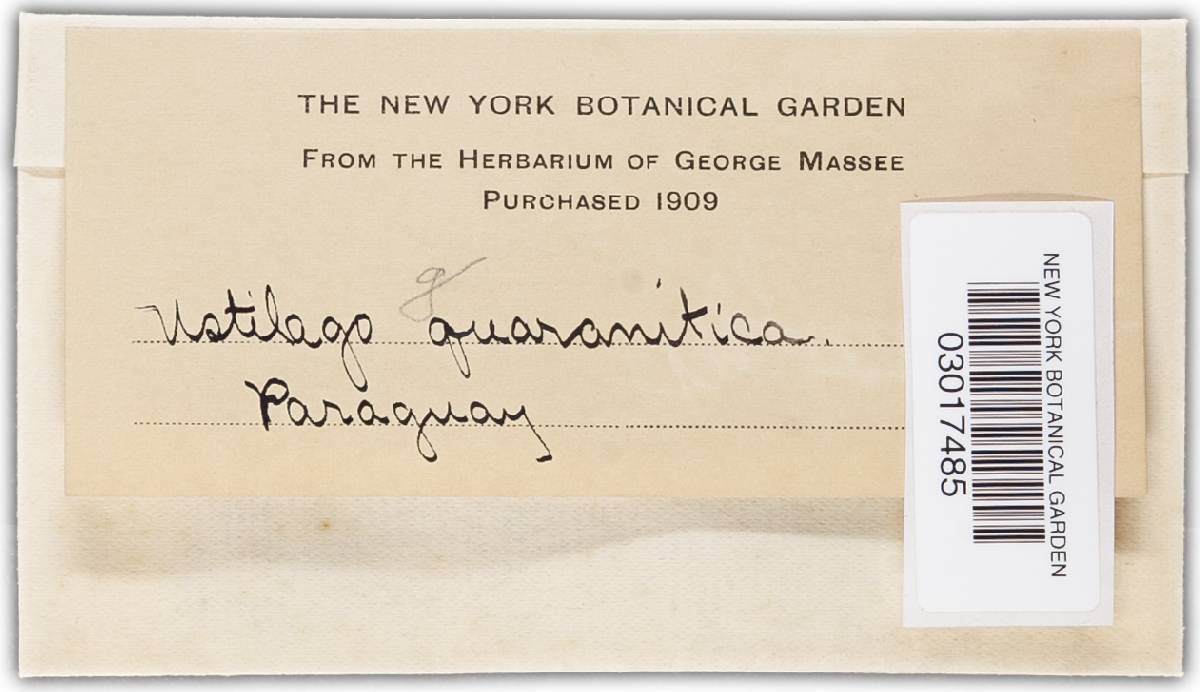 THE NEW YORK BOTANICAL GARDEN
FROM THE HERBARIUM OF GEORGE MASSEE
PURCHASED 1909
g
Ustilago quaranitica.
Paraguay
NEW YORK BOTANICAL GARDEN
03017485